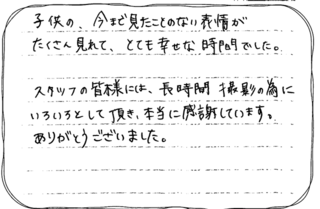 子供の、今まで見たことのない表情が
たくさん見れて、とても幸せな時間でした。
スタッフの皆様には、長時間 撮影の為に
いろいろとして頂き、本当に感謝しています。
ありがとうございました。